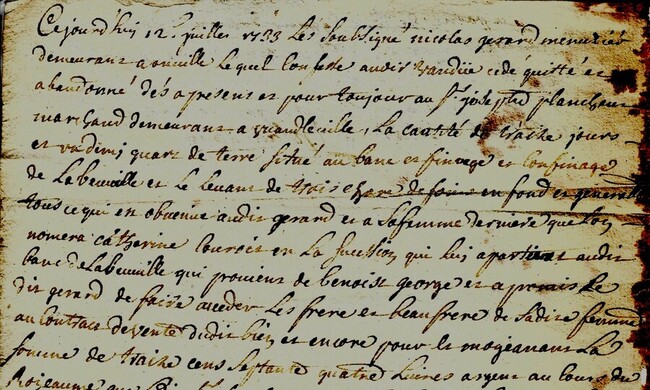 Cejourd'huy 12e juillet 1733 Les soubsigné nicolas gerard menusier
demeurant a onuille Lequel Confesse auoir Vandüe cedé quitté et
abandonné dés apresent et pour toujour au Sr joseph plancheur
marchand demeurant a vuandleuille, La cantité de traize jours
et vn dimj quart de terre situé au banc et finage et Confinage
de Labeuuille et Le Leuant de trois chare de foins en fond et generalle
tous ce qui en obuenue audit gerard et a Safemme derniere que Lon
nomera Catherine Courois en La Succession qui luy apartient audit
banc de Labeuuille qui prouient de benoist george et a promis Le
dit gerard de faire acceder Les frere et beaufrere de Sadite femme
au Contract de vente dudit bien et encore pour et mojenant La
Somme de traize cens Septante quatre Liures argent au Cours de
Rojeaume